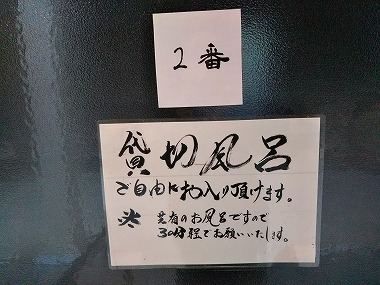 2番
貸切風呂
ご自由にお入り頂けます。
共有のお風呂ですので
30分程でお願いいたします。